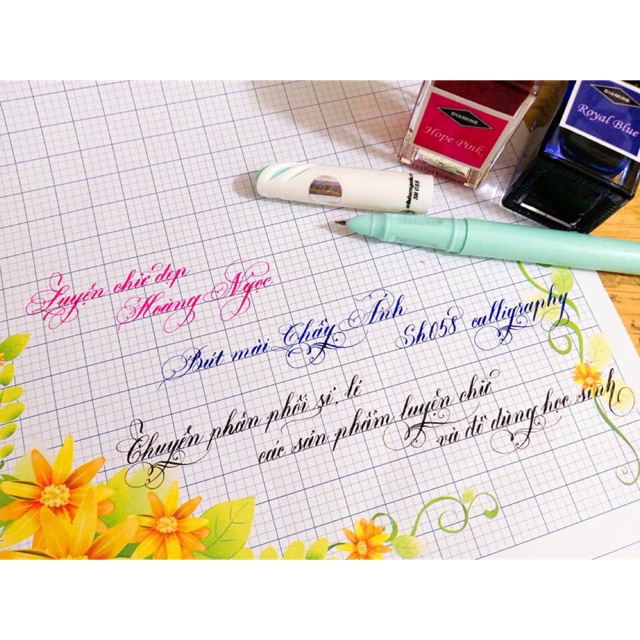 DIAMINE
Hope Pink
DIAMINE
Royal Blue
SH 058
Luyện chữ đẹp
Hoàng Ngọc
Bút mài Thầy Ánh
Sh058 calligraphy
Chuyên phân phối sỉ, lẻ
các sản phẩm luyện chữ
và đồ dùng học sinh